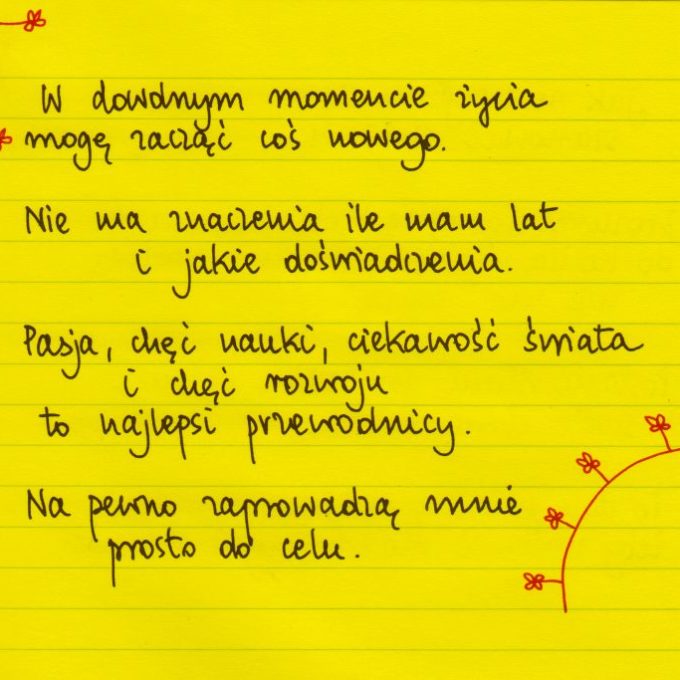 W dowolnym momencie życia
mogę zacząć coś nowego.
Nie ma znaczenia ile mam lat
i jakie doświadczenia.
Pasja, chęć nauki, ciekawość świata
i chęć rozwoju
to najlepsi przewodnicy.
Na pewno zaprowadzą mnie
prosto do celu.